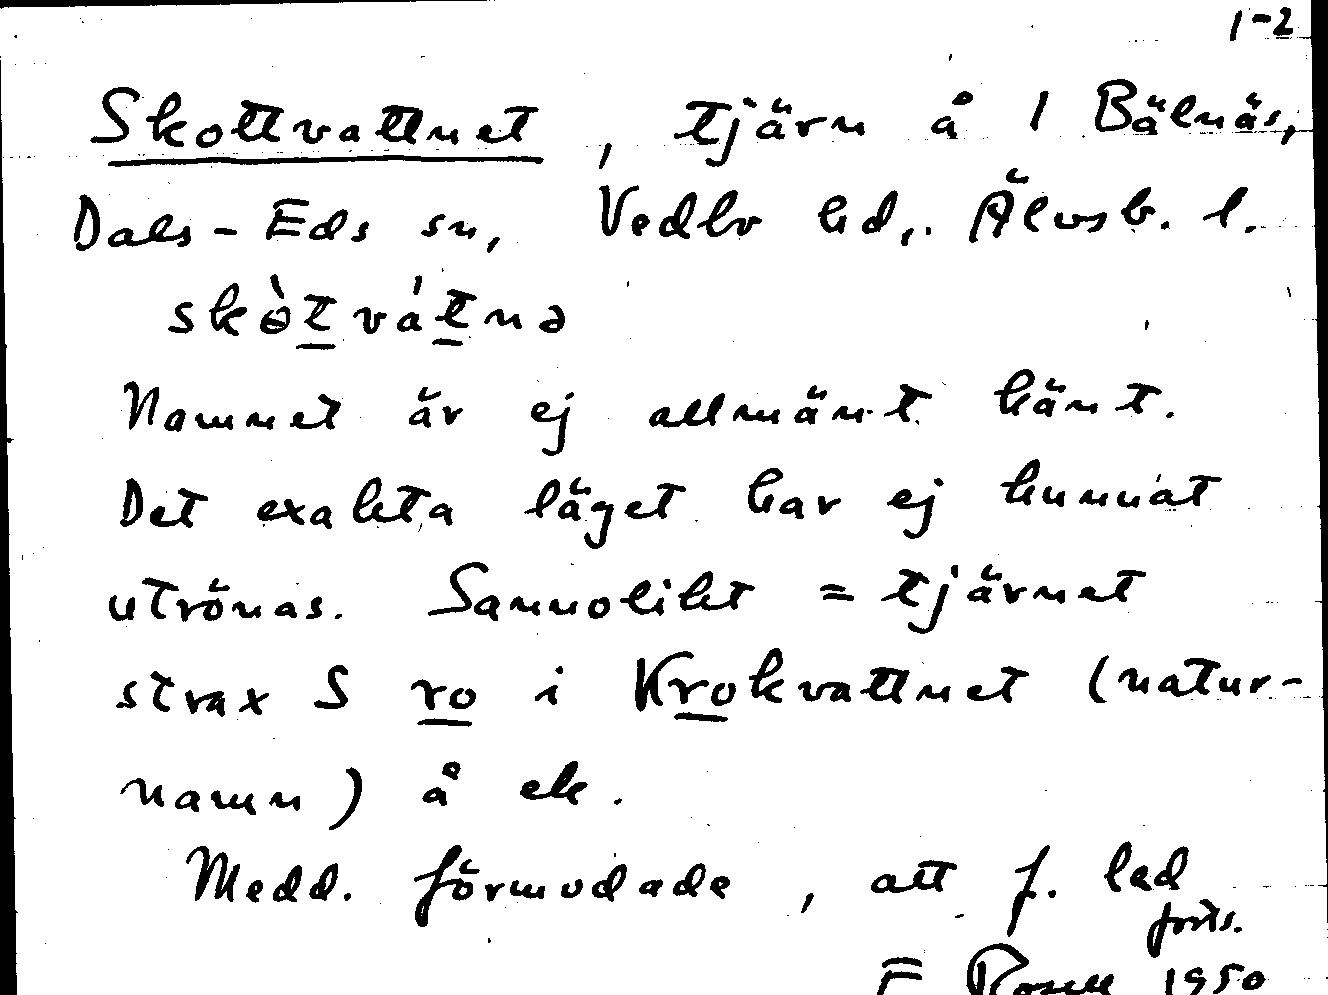 1-2
Skottvattnet, tjärn å 1 Bälnäs,
Dals-Eds sn, Vedbo hd, Älvsb. l.
skɵ̀tvátnə
Namnet är ej allmänt känt.
Det exakta läget har ej kunnat
utrönas. Sannolikt = tjärnet
strax S ro i Krokvattnet (natur-
namn) å ek.
Medd. förmodade, att f. led
forts.
E Rosell 1950